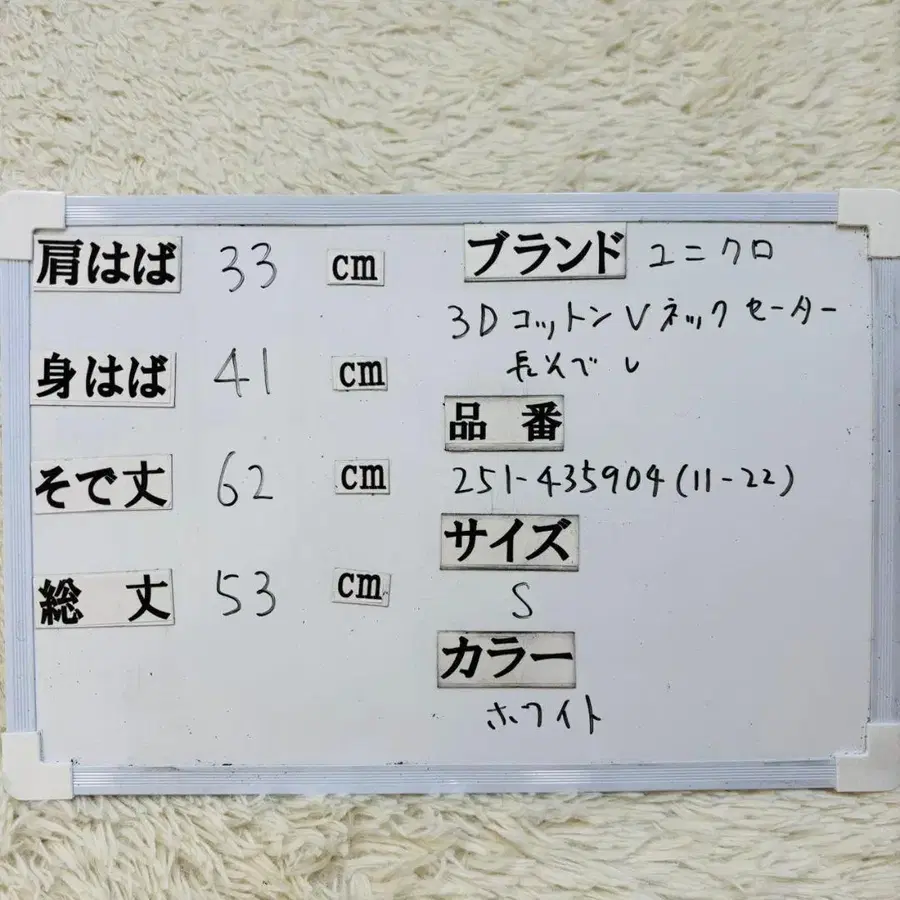 肩はば 33 cm
身はば 41 cm
そで丈 62 cm
総丈 53 cm
ブランド ユニクロ
3DコットンVネックセーター
長そでし
品番
251-435904(11-22)
サイズ
S
カラー
ホワイト